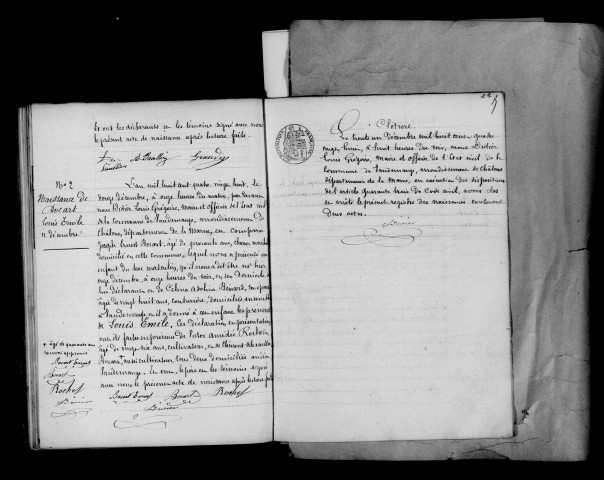 et ont les déclarants et les témoins signé avec nous
le présent acte de naissance après lecture faite.
N° 2
Naissance de
Bocart
Louis Emile
11 décembre
L'an mil huit cent quatre vingt huit, le
douze décembre, à onze heures du matin, par devant
nous Didier Louis Grégoire, Maire et officier de l'état civil
de la commune de Vaudemange, arrondissement de
Châlons, département de la Marne, est comparu
Joseph Ernest Bocart, âgé de quarante ans,
domicilié en cette commune, lequel nous a présenté un
enfant du sexe masculin, qu'il nous a dit être né hier
onze décembre, à onze heures du soir, en son domicile
de lui déclarant et de Celina
âgée de vingt huit ans, couturière, domiciliée
à Vaudemange et il a donné à cet enfant les prénoms
de Louis Emile, les déclaration et présentation
ont été faites en présence de Victor Amédée Rochet
âgé de vingt six ans, cultivateur, et de
Bocart + aussi cultivateur, tous deux domiciliés
Vaudemange. Le et les témoins signé
avec nous le présent acte de naissance après lecture faite
Bocart Ernest Bocart Rochet
Didier
+ âgé de quarante ans
renvoi approuvé
Bocart Ernest
Bocart
Rochet
Didier
Clôture
Le trente un Décembre mil huit cent quatre
vingt huit, à huit heures du soir, nous Didier
Louis Grégoire, Maire et officier de l'état civil de la
commune de Vaudemange, arrondissement de Châlons
département de la Marne, en exécution des dispositions
de l'article quarante trois du Code civil, avons clos
et arrêté le présent registre des naissances contenant
Deux actes.
Didier